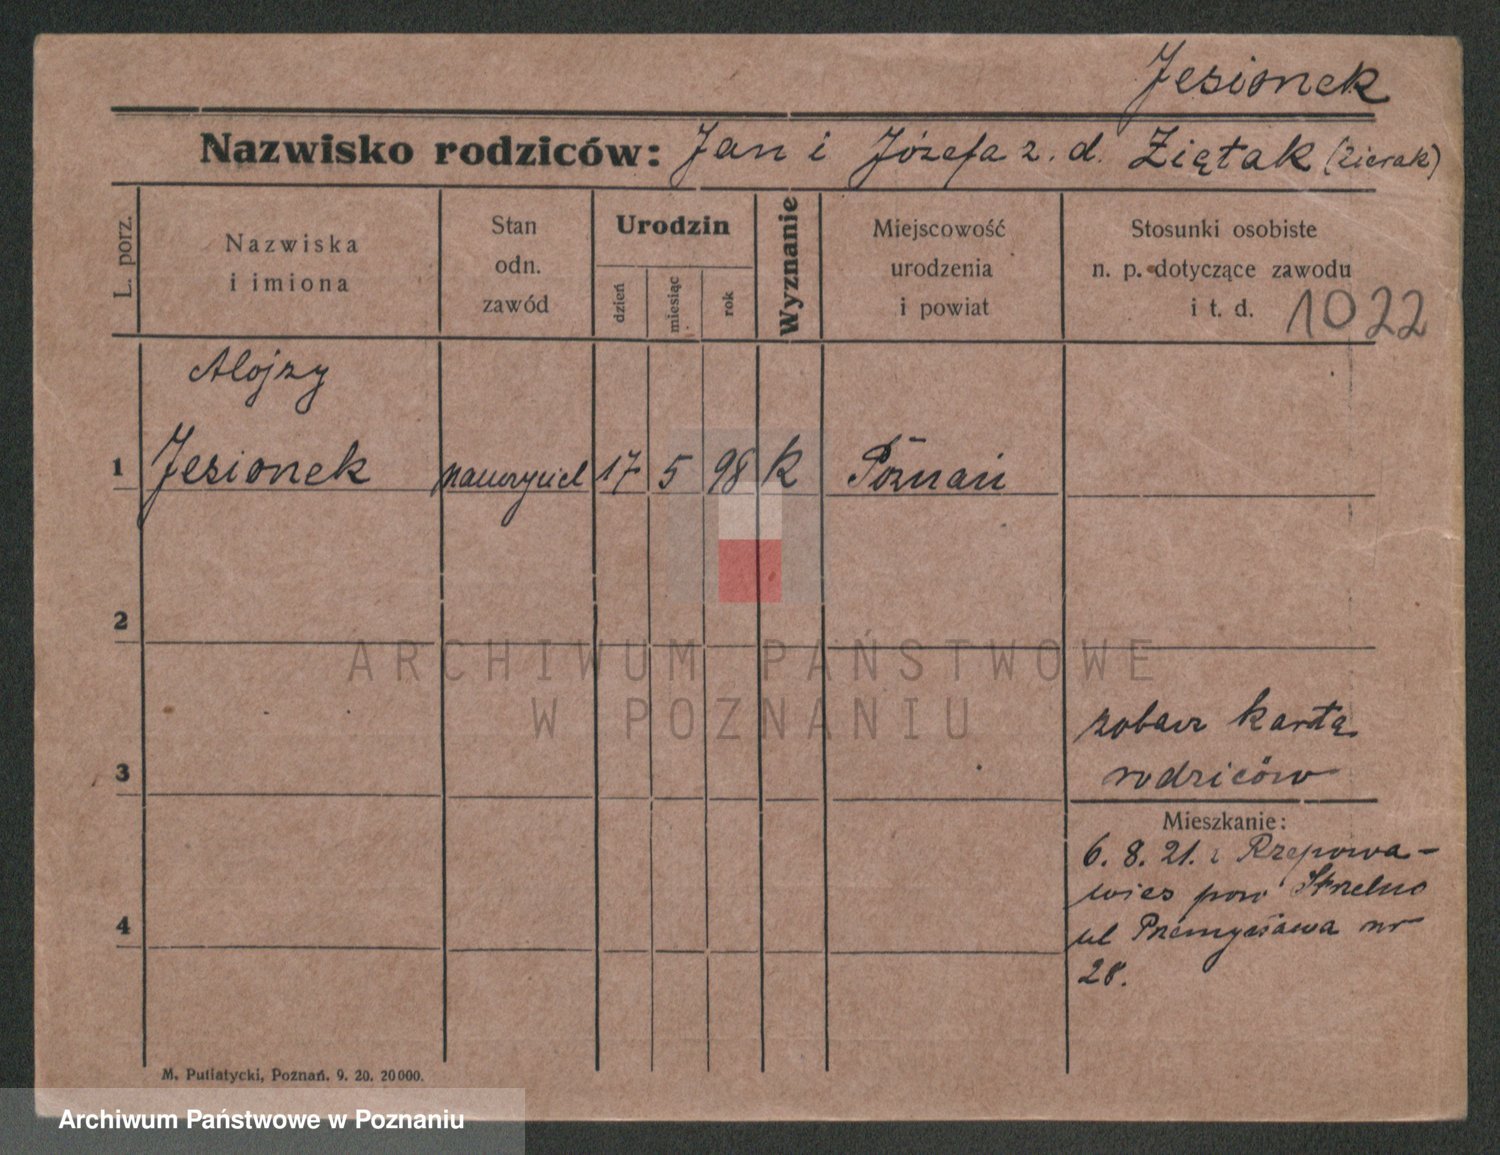 Jesionek
Nazwisko rodziców: Jan i Józefa z. d. Ziętak (Zierak)
L. porz.
Nazwiska
i imiona
Stan
odn.
zawód
Urodzin
dzień
miesiąc
rok
Wyznanie
Miejscowość
urodzenia
i powiat
Stosunki osobiste
n. p. dotyczące zawodu
i t. d.
1022
Alojzy
1 Jesionek nauczyciel 17 5 98 k Poznań
2
ARCHIWUM PAŃSTWOWE
W POZNANIU
zobacz kartę
3 rodziców
Mieszkanie:
6. 8. 21. z Rzepowa-
wies pow Strzelno
4 ul Przemysława nr
28.
M. Putiatycki, Poznań. 9. 20. 20000.
Archiwum Państwowe w Poznaniu